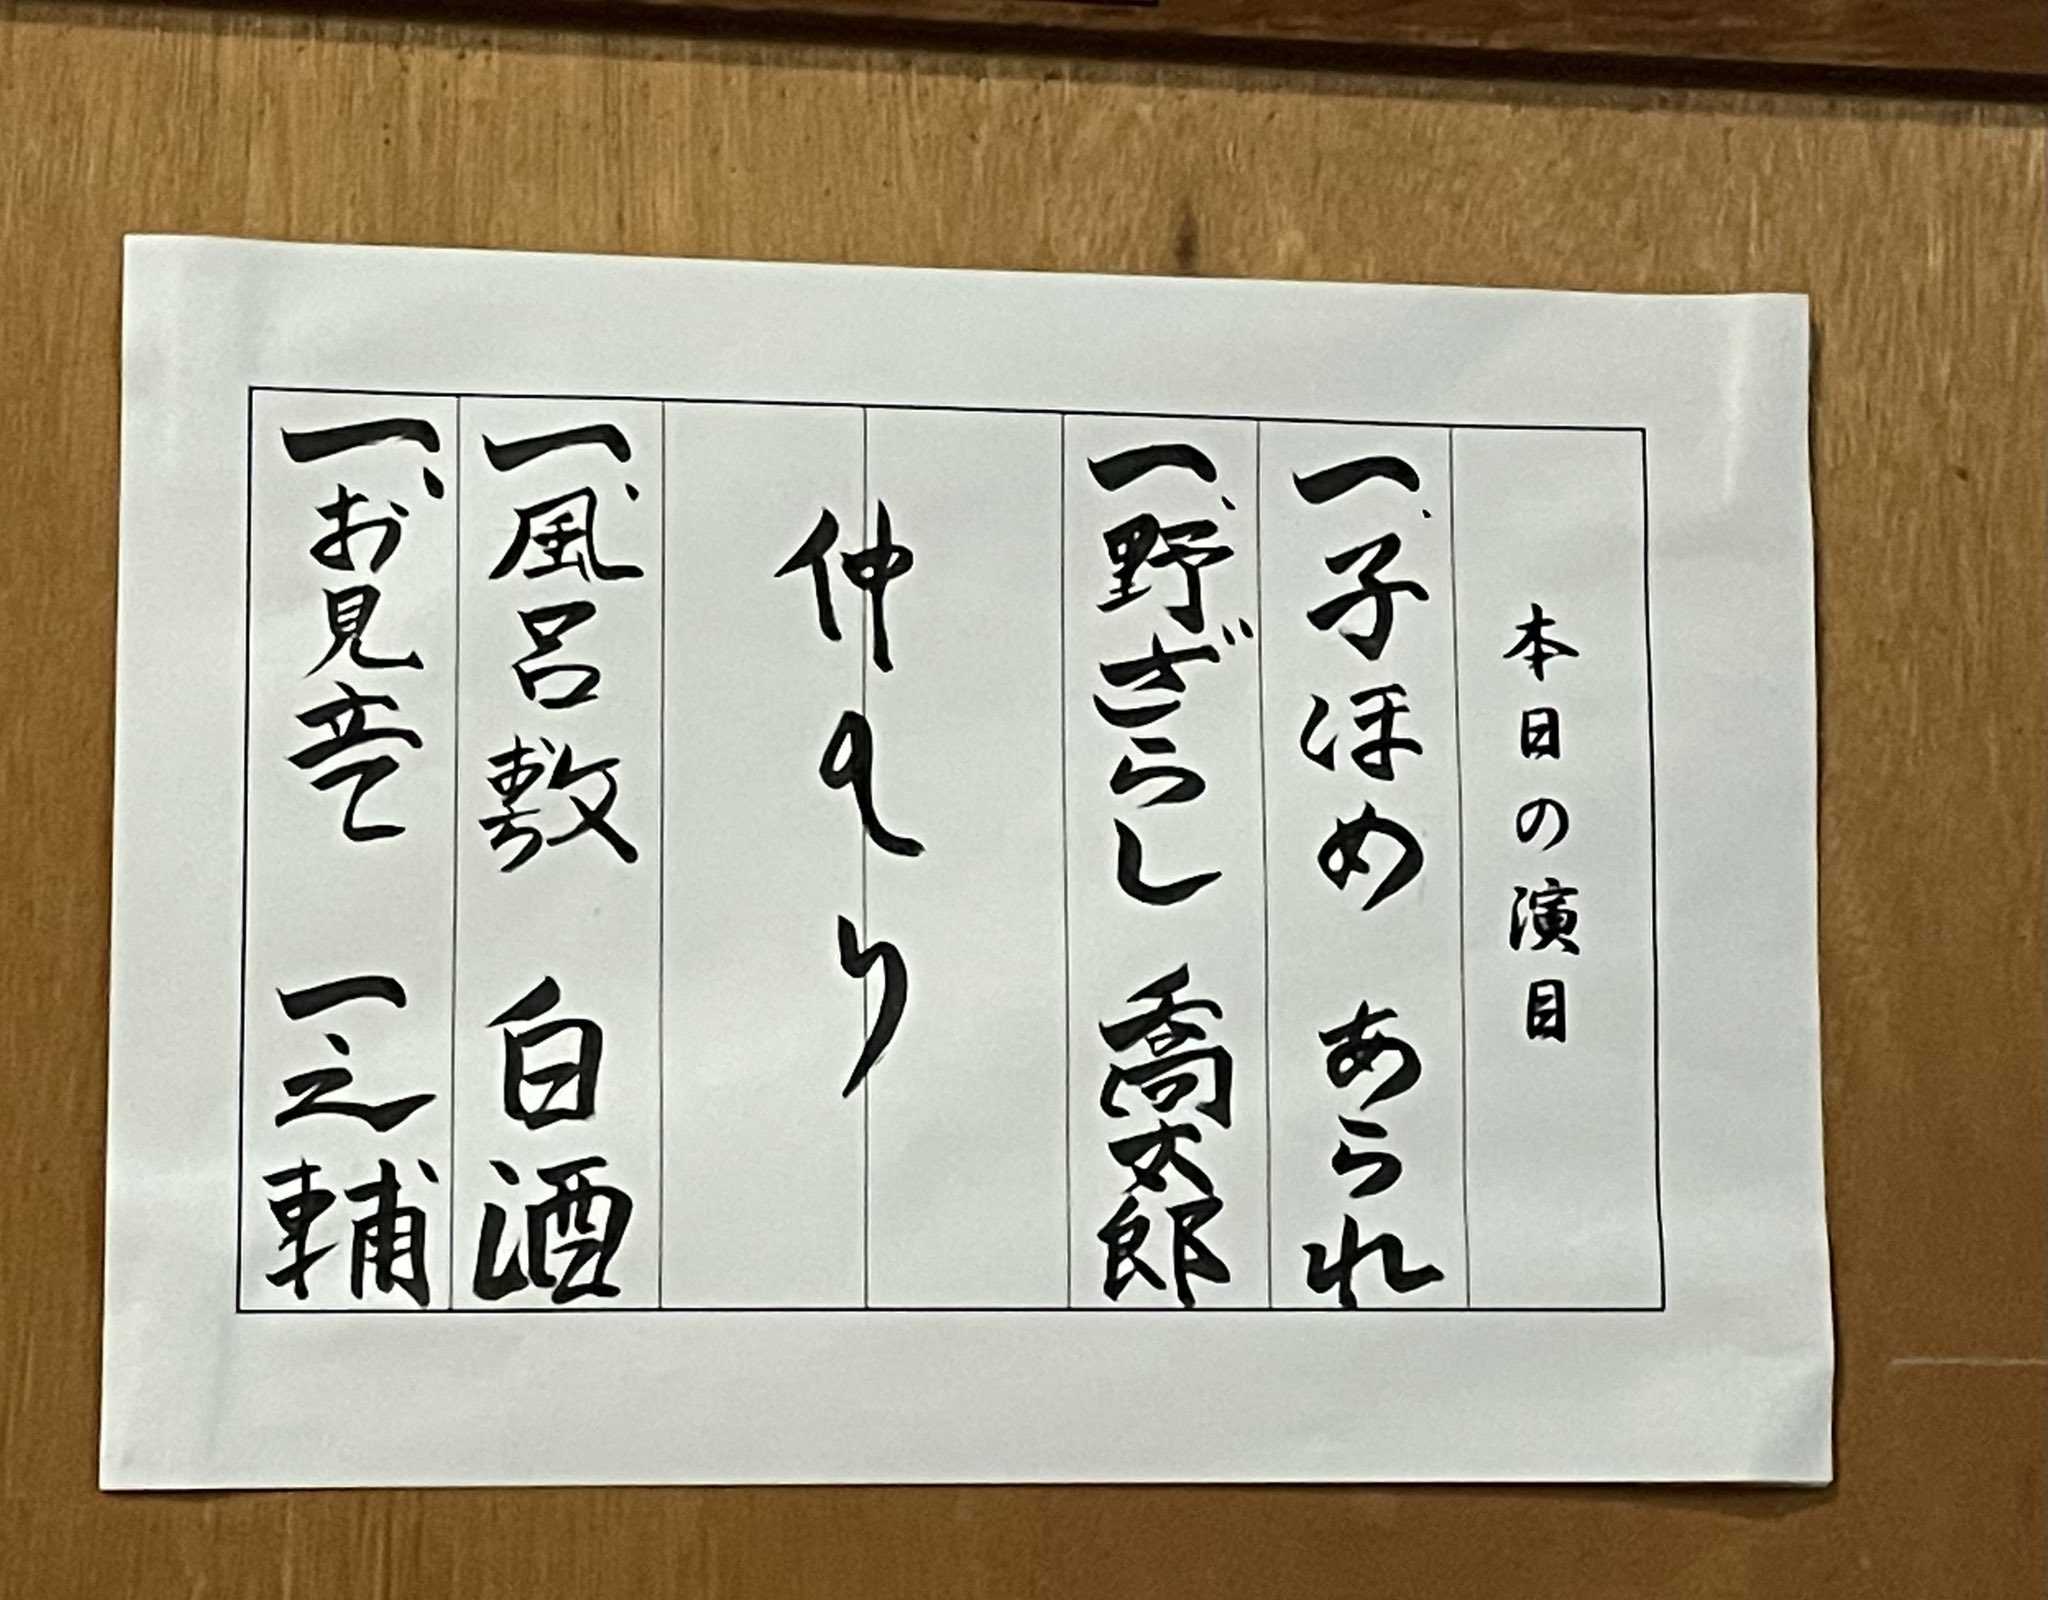 本日の演目
一、子ほめ　あられ
一、野ざらし　喬太郎
仲入り
一、風呂敷　白酒
一、お見立て　一之輔